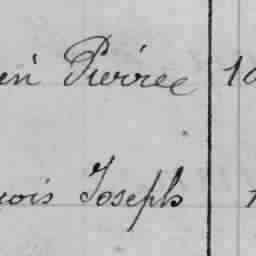 en Pierre 10
ois Joseph